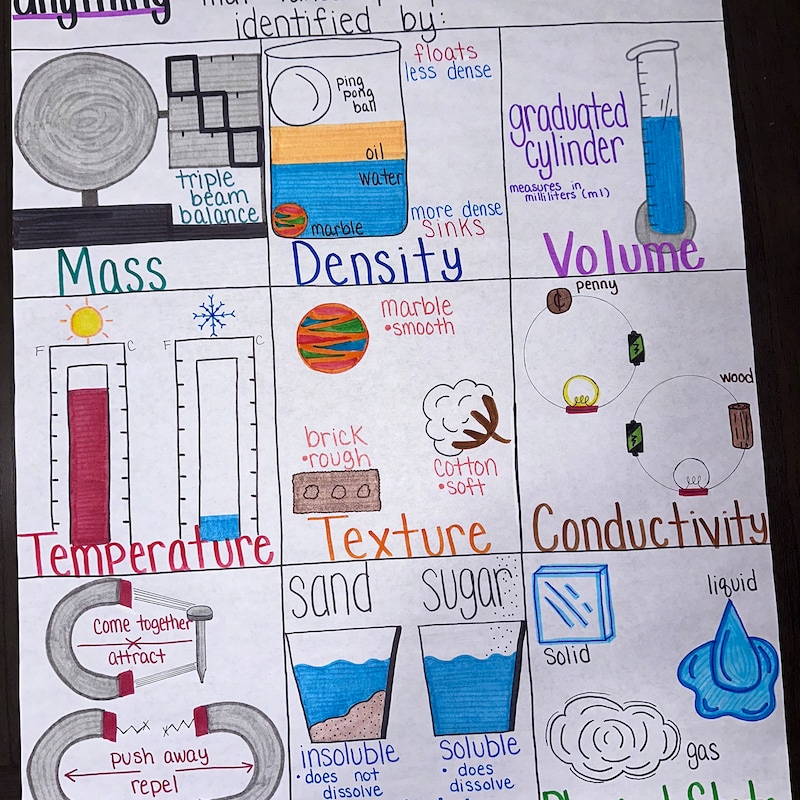 anything
identified by:
triple
beam
balance
Mass
ping
pong
ball
oil
water
marble
floats
less dense
more dense
sinks
Density
graduated
cylinder
measures in
milliliters (ml)
Volume
F C
F C
Temperature
marble
•smooth
brick
•rough
cotton
•soft
Texture
penny
¢
wood
Conductivity
Come together
attract
push away
repel
sand
sugar
insoluble
• does not
dissolve
soluble
• does
dissolve
solid
liquid
gas